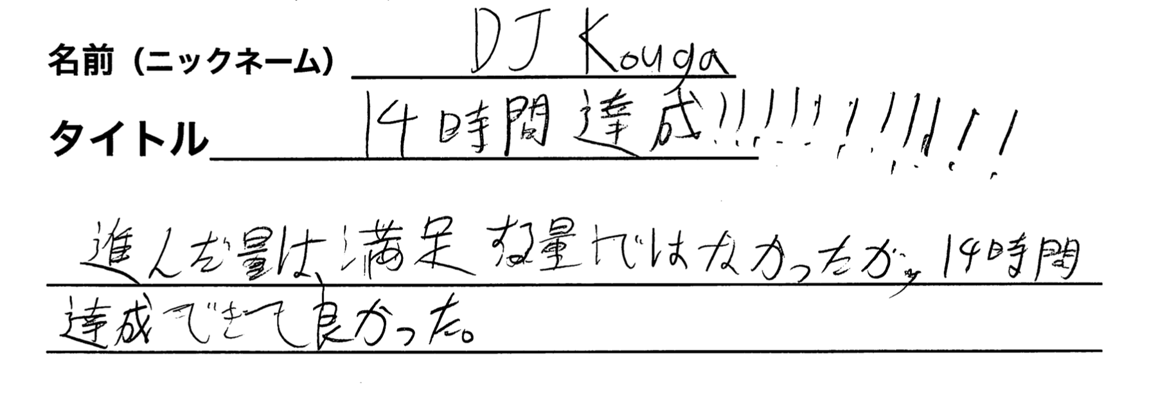 名前（ニックネーム） DJ Kouga
タイトル 14時間達成!!!!!!!!!!!!!
進んだ量は、満足する量ではなかったが、14時間
達成できて良かった。